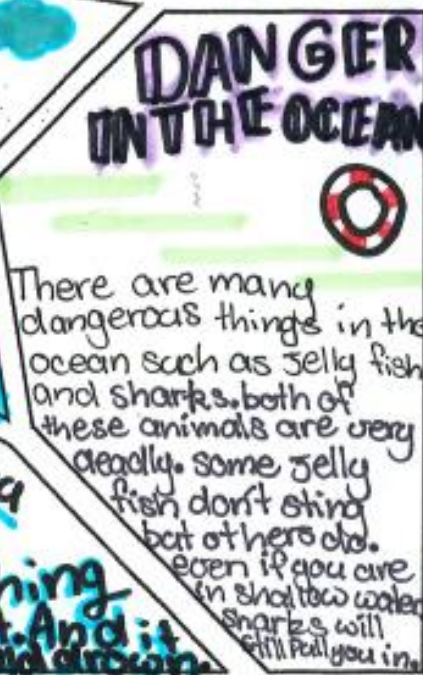 DANGER
IN THE OCEAN
There are many
dangerous things in the
ocean such as jelly fish
and sharks. both of
these animals are very
deadly. some jelly
fish don't sting
but others do.
even if you are
in shallow water
sharks will
still pull you in.
ning
t. And it
drown.